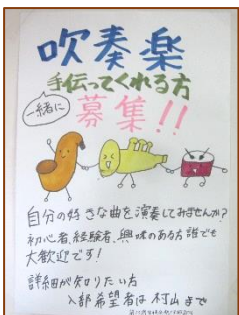 吹奏楽
手伝ってくれる方
一緒に
募集!!
自分の好きな曲を演奏してみませんか?
初心者、経験者、興味のある方誰でも
大歓迎です!
詳細が知りたい方
入部希望者は村山まで